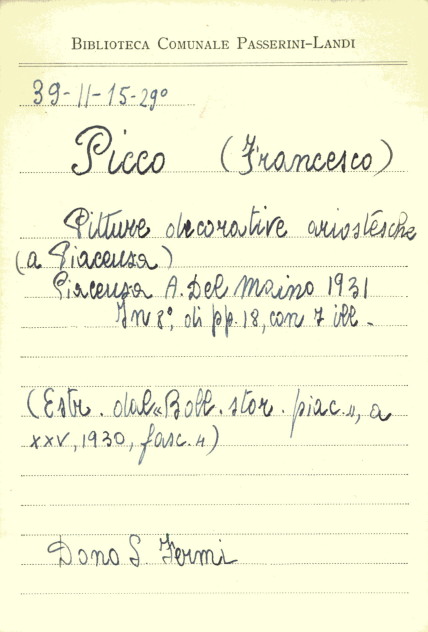 BIBLIOTECA COMUNALE PASSERINI-LANDI
39-II-15-29º
Picco (Francesco)
Pitture decorative ariostesche
(a Piacenza)
Piacenza A. Del Maino 1931
In 8º, di pp. 18, con 7 ill.
(Estr. dal «Boll. stor. piac.», a
XXV, 1930, fasc. 4)
Dono S. Fermi